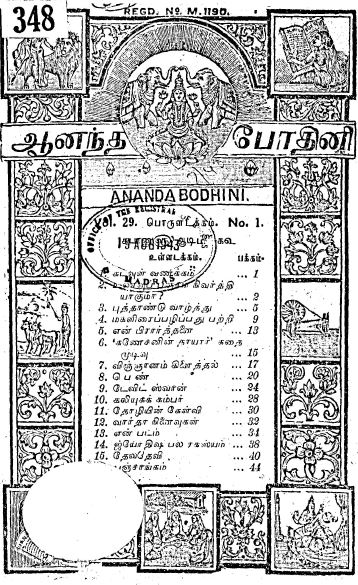 348
REGD. No. M. 1190.
ஆனந்த போதினி
ANANDA BODHINI.
29. பொருளடக்கம். No. 1.
OFFICE OF THE REGISTRAR
MADRAS
உள்ளடக்கம். பக்கம்.
1. கடவுள் வணக்கம் ... 1
2. யாகுமா? ... 2
3. புத்தாண்டு வாழ்த்து ... 5
4. மகளிரைப்பழிப்பது பற்றி 9
5. என் பிரார்த்தனை ... 13
6. 'கணேசனின் தாயார்' கதை
முடிவு ... 15
7. விஞ்ஞானம் கிளைத்தல் ... 17
8. பெண் ... 20
9. டேவிட் ஸ்வான் ... 24
10. கலியுகக் கம்பர் ... 28
11. தோழியின் கேள்வி ... 30
12. வார்தா கிளைவுகள் ... 32
13. என் படம் ... 34
14. ஜ்யோதிஷ பல ரகஸ்யம் ... 38
15. தேவதேவி ... 40
பஞ்சாங்கம் ... 44